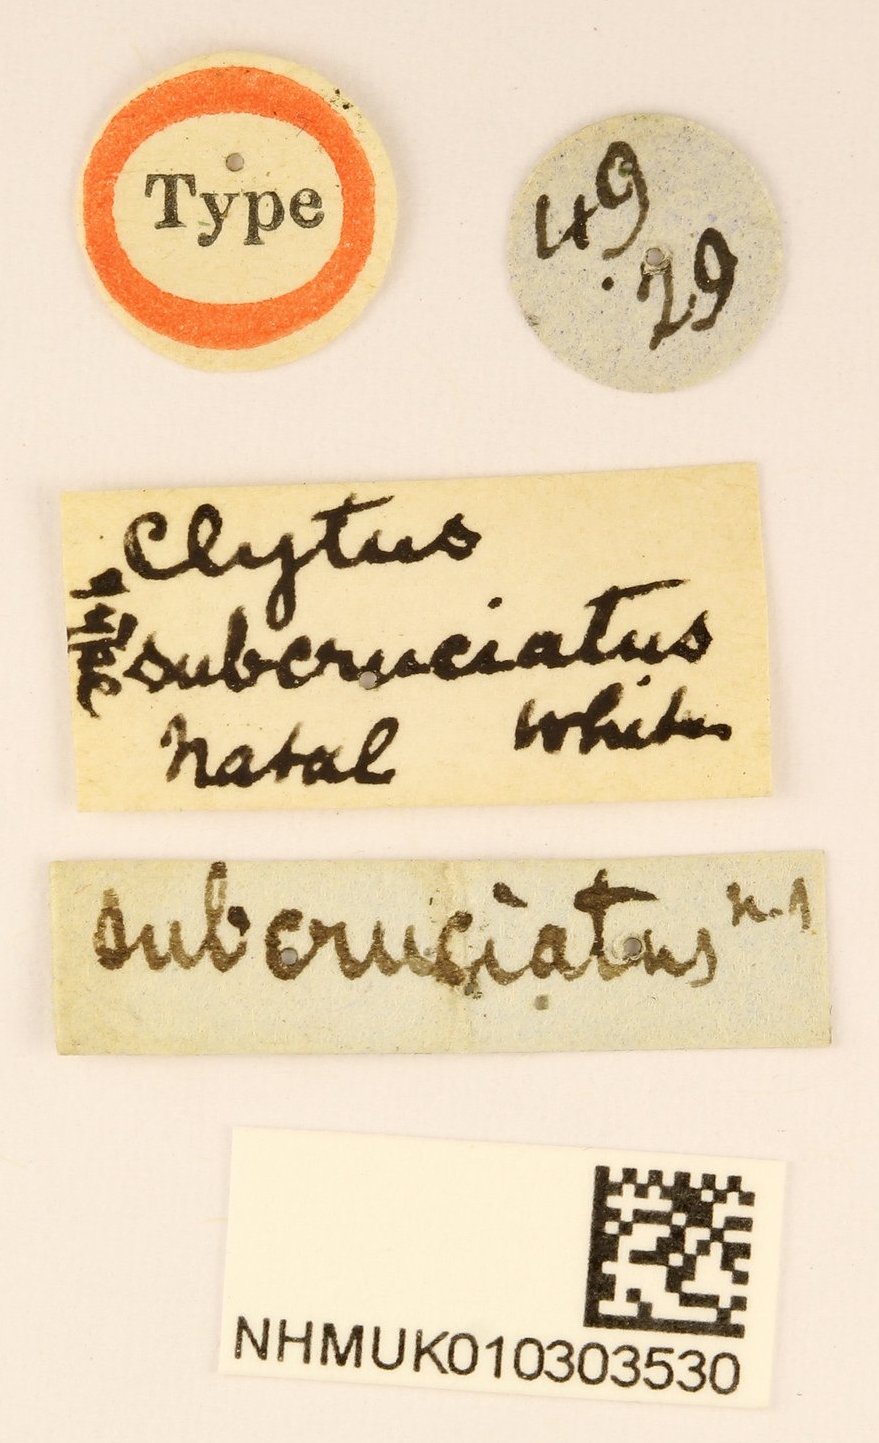 Type
49
.29
Clytus
subcruciatus
Natal White
subcruciatus n.s
NHMUK010303530